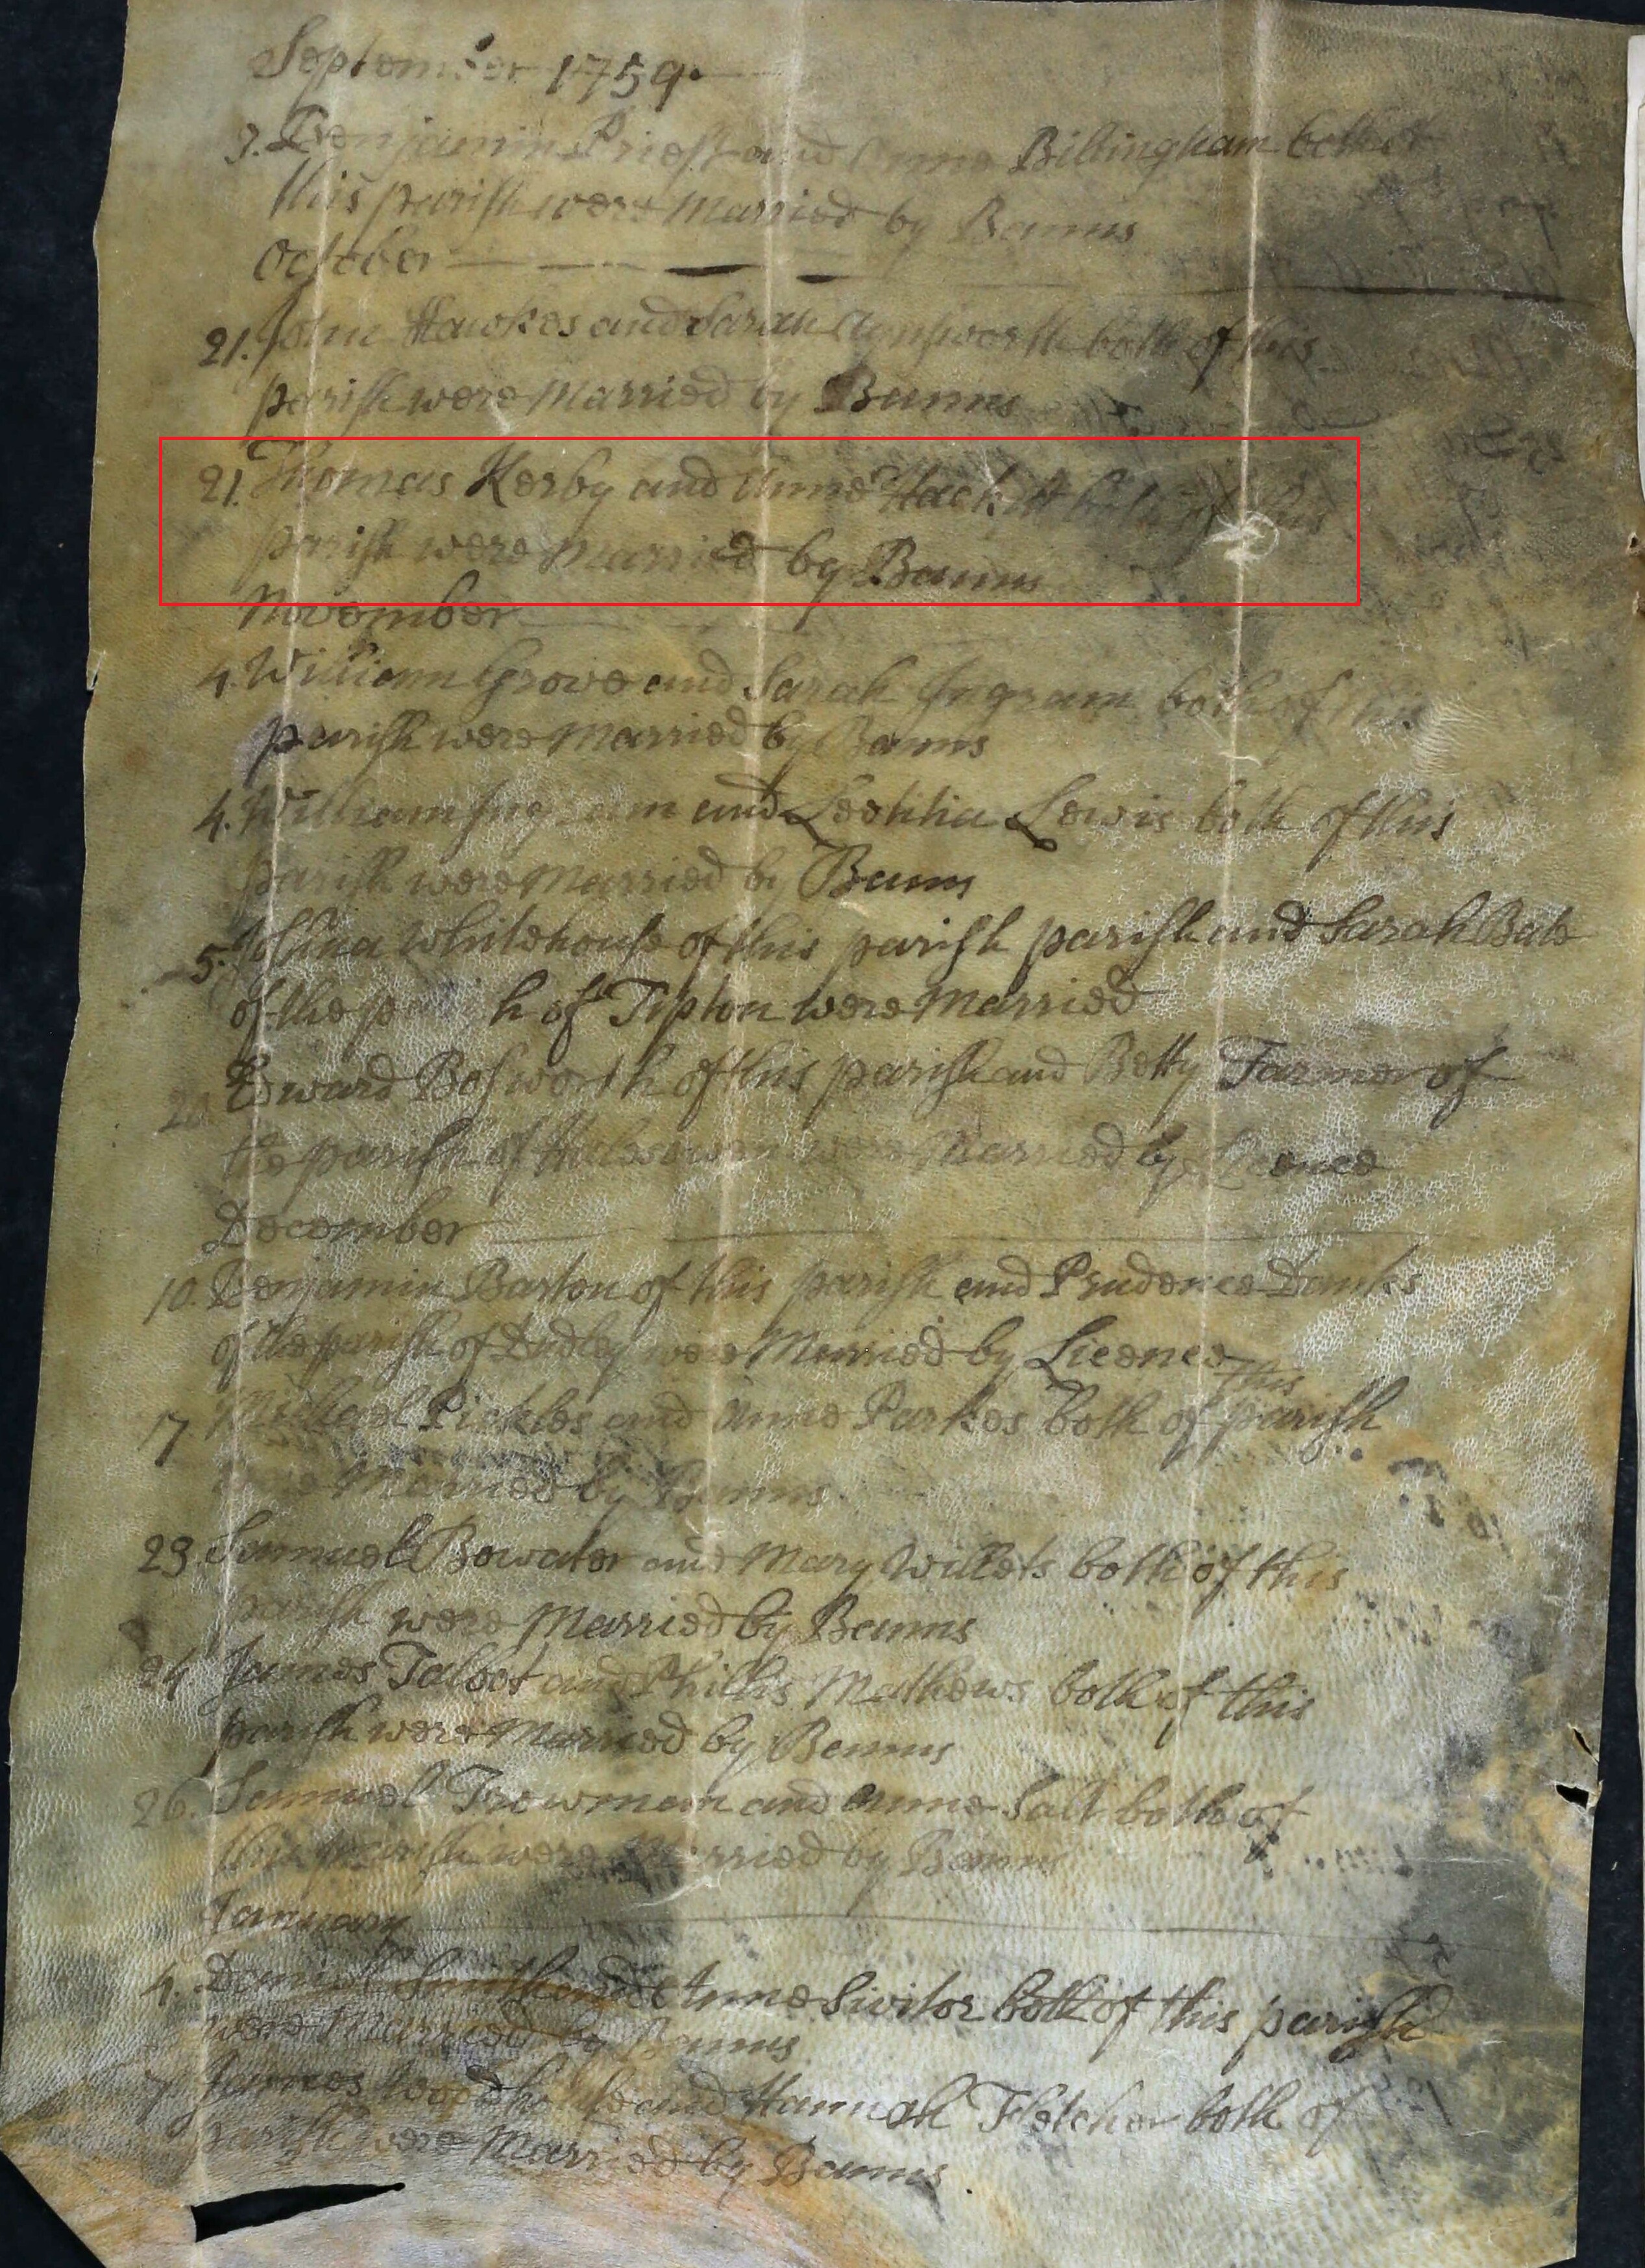 September 1759
9. Benjamin Priest and Anne Billingham both of
this parish were Married by Banns
October
21. John Hawkes and Sarah Aynsworth both of this
parish were Married by Banns
21. Thomas Kerby and Anne Hackett both of this
parish were Married by Banns
November
4. William Grove and Sarah Ingram both of this
parish were Married by Banns
4. William Ingram and Leotitia Lewis both of this
parish were Married by Banns
5. Joshua Whitehouse of this parish parish and Sarah Bate
of the p h of Tipton were Married
Edward Bosworth of this parish and Betty Farmer of
the parish of were Married by Licence
December
10. Benjamin Barton of this parish and Prudence Danks
of the parish of Dudley were Married by Licence
this
17 Michael Pickles and Anne Parkes both of parish
were Married by Banns
23. Samuel Bowater and Mary Willets both of this
parish were Married by Banns
24 James Talbot and Phillis Mathews both of this
parish were Married by Banns
26. Samuel Trowman and Anne Salt both of
this parish were Married by Banns
January
4. Daniel Smith and Anne Siviter both of this parish
were Married by Banns
7 James Woodhouse and Hannah Fletcher both of
parish were Married by Banns